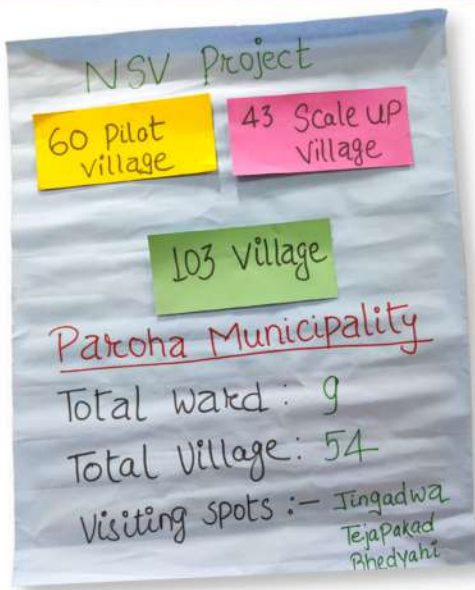 NSV Project
60 Pilot
village
43 Scale UP
Village
103 Village
Paroha Municipality
Total ward : 9
Total Village : 54
Visiting spots :- Jingadwa
TejaPakad
Bhedyahi